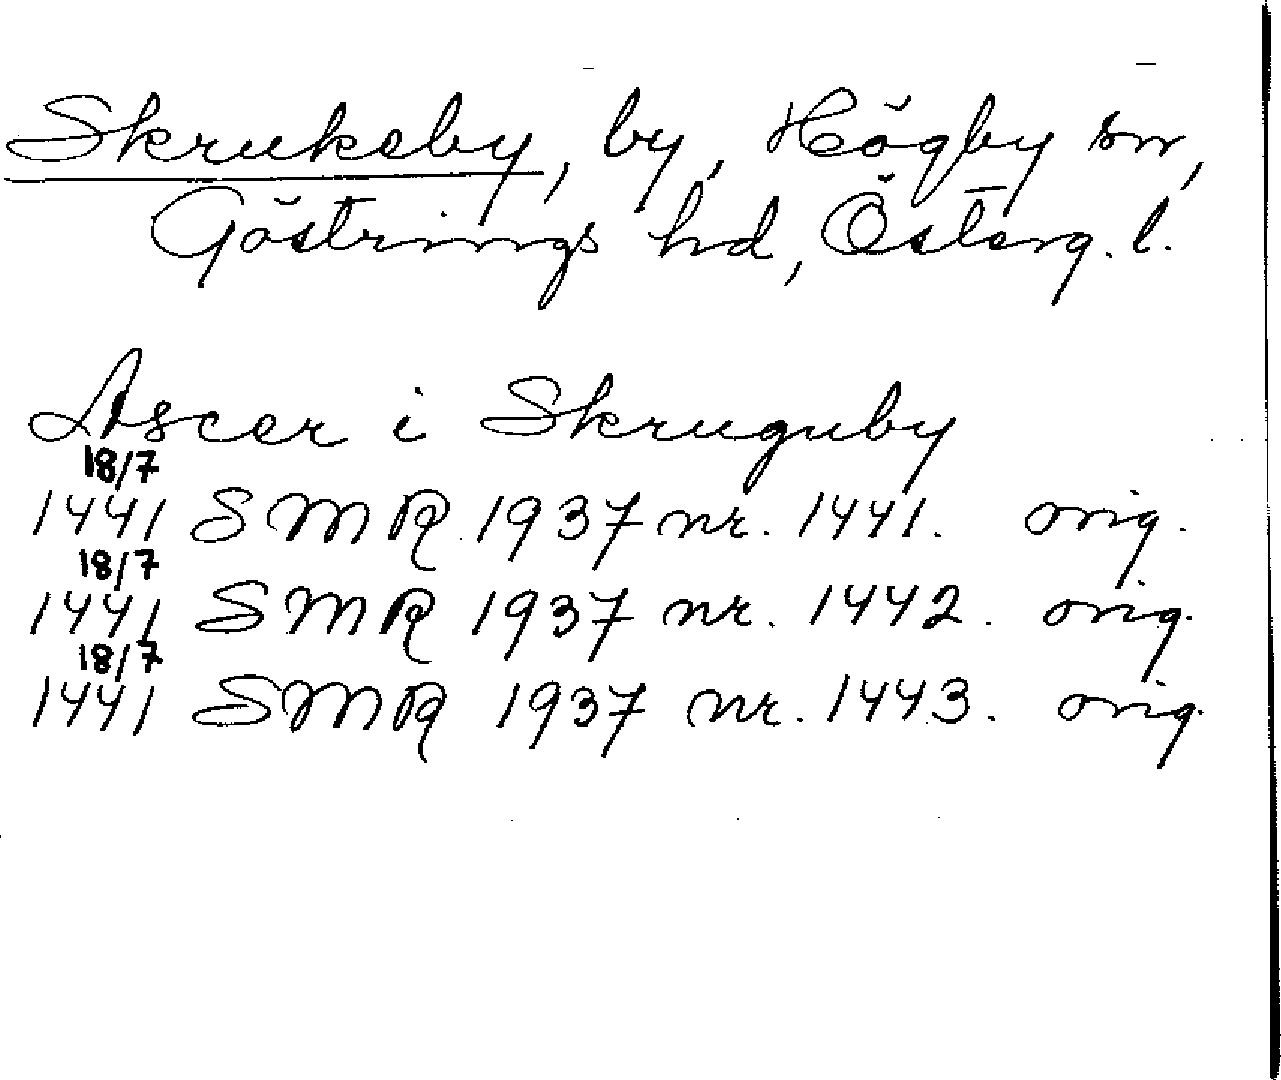 Skrukeby, by, Högby sn,
Göstrings hd, Österg. l.
Ascer i Skruguby
18/7
1441 SMR 1937 nr. 1441. orig.
18/7
1441 SMR 1937 nr. 1442. orig.
18/7
1441 SMR 1937 nr. 1443. orig.